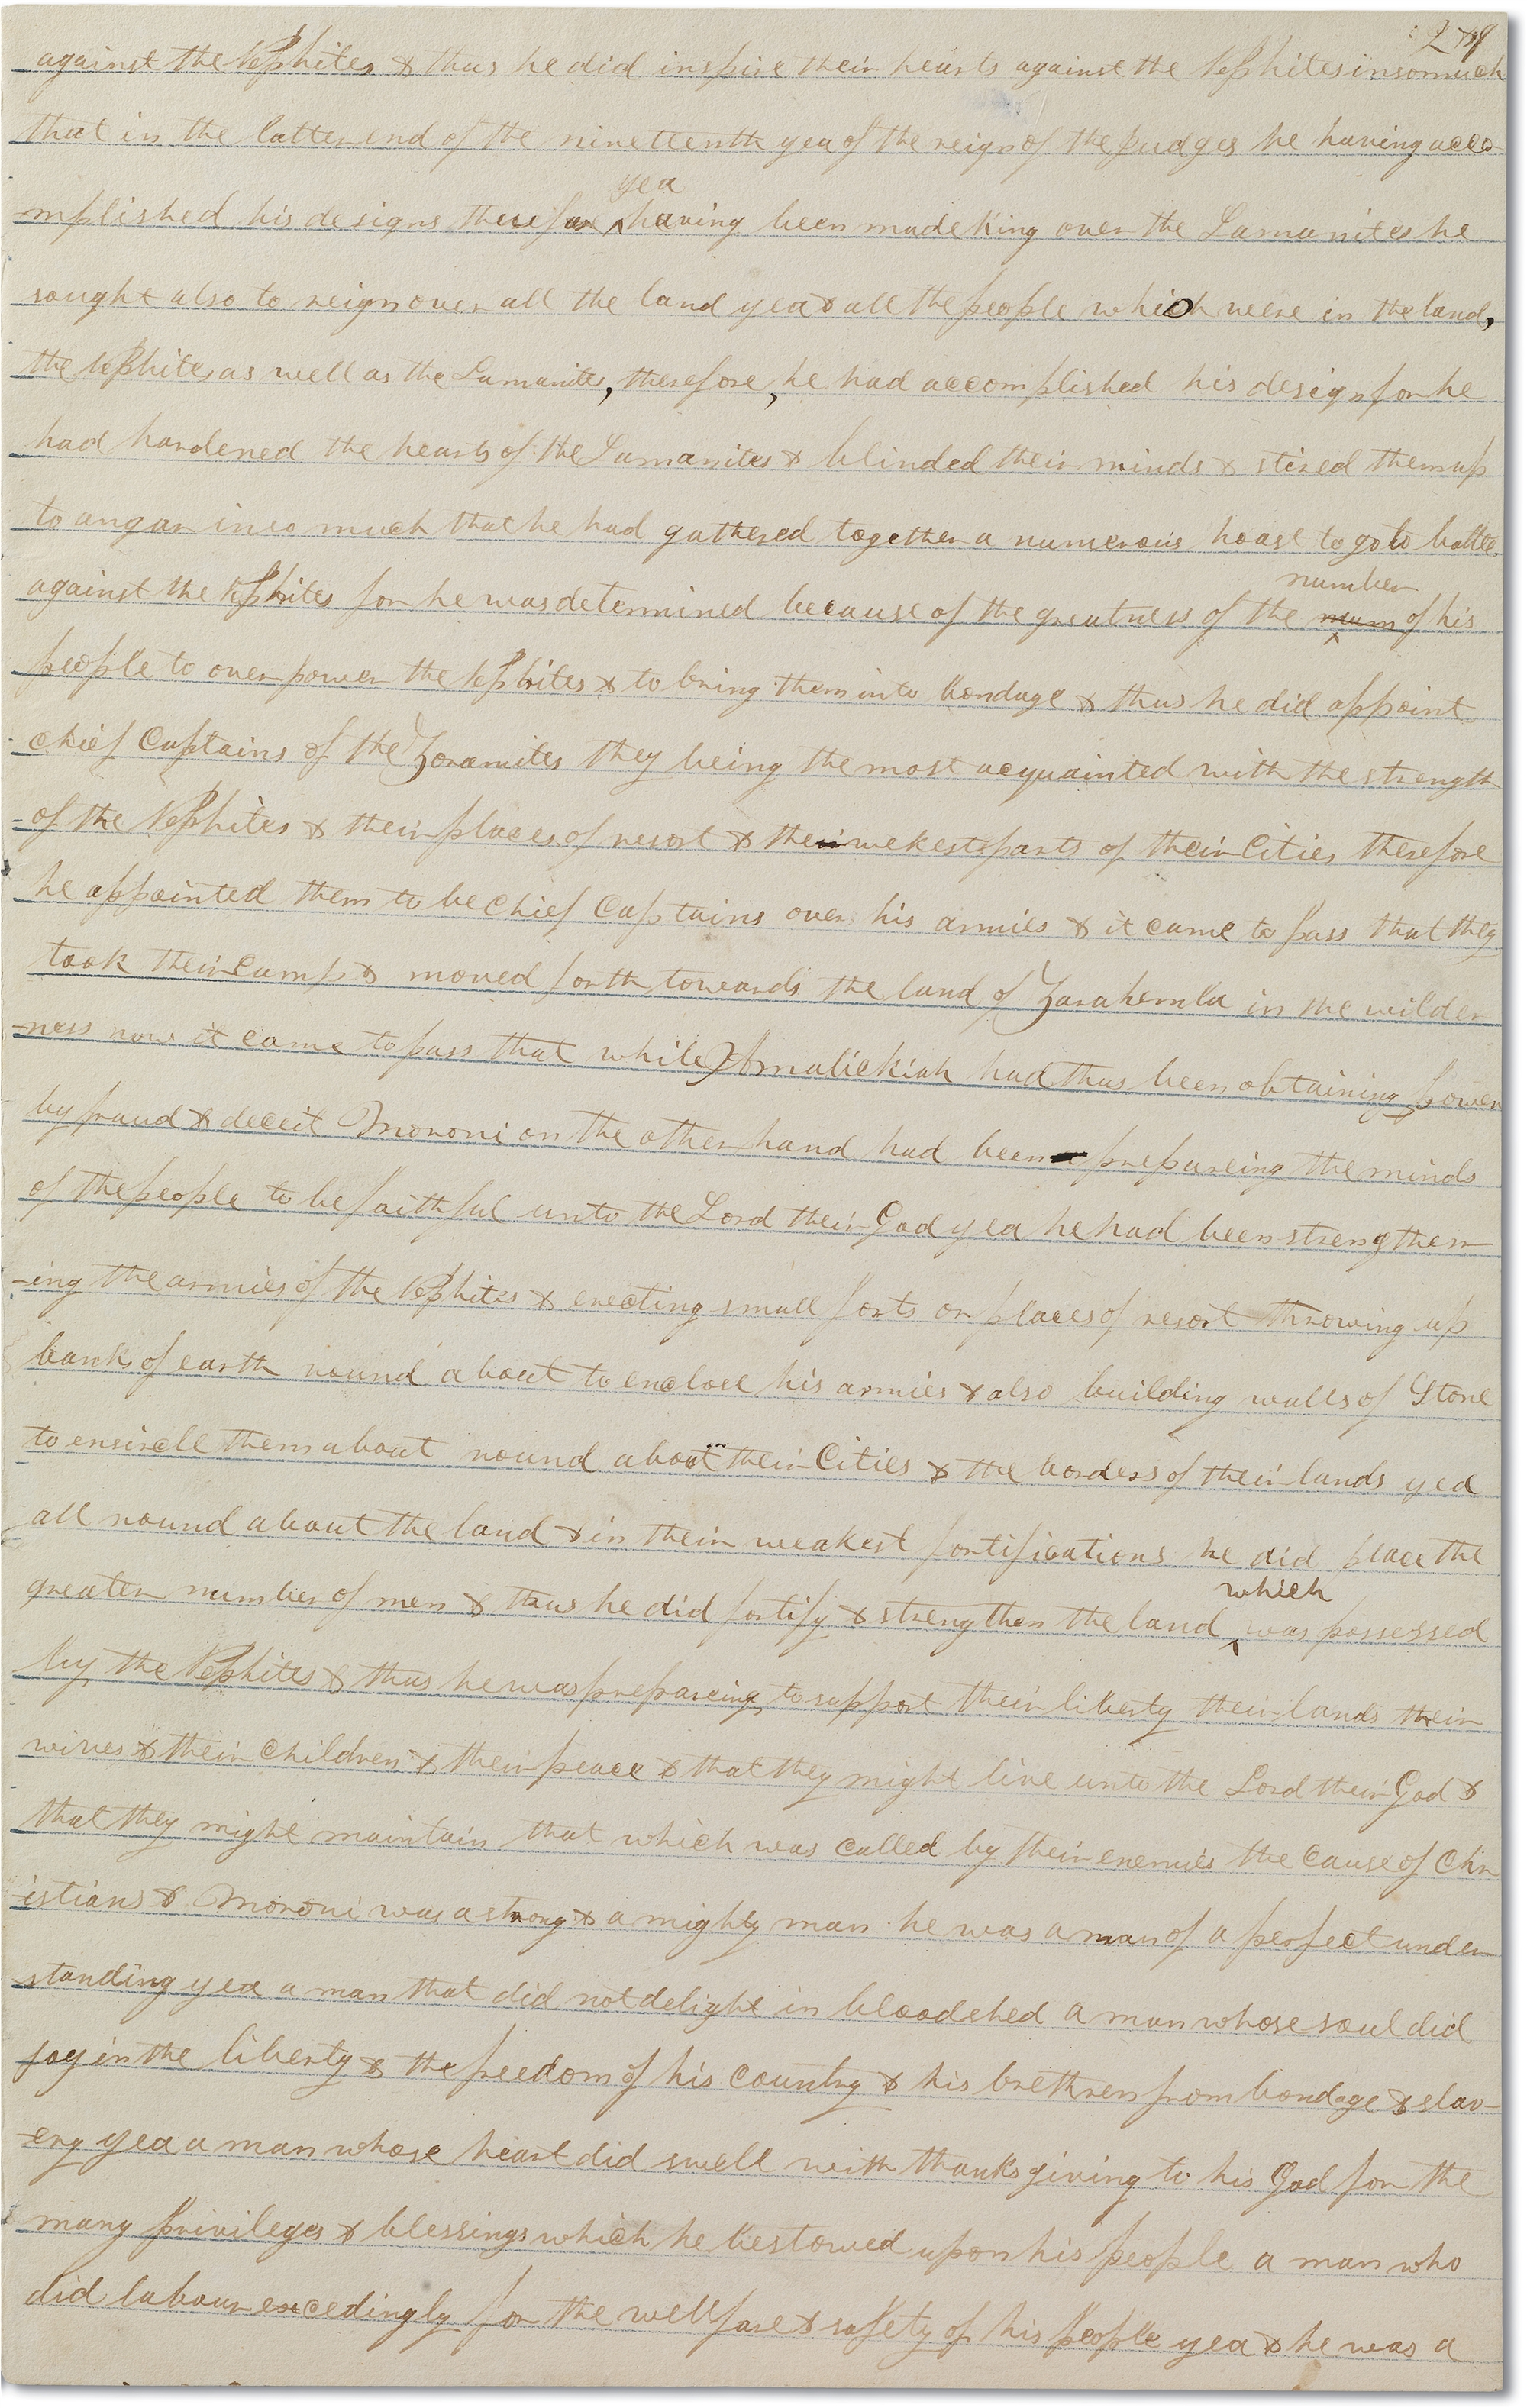 against the Nephites & thus he did inspire their hearts against the Nephites insomuch
that in the latter end of the nineteenth yea of the reign of the judges he having acco-
yea
mplished his designs therefore ^ having been made King over the Lamanites he
saught also to reign over all the land yea & all the people which were in the land,
the Nephites as well as the Lamanites, therefore, he had accomplished his design for he
had hardened the hearts of the Lamanites & blinded their minds & stired them up
to angar inso much that he had gathered together a numerous hoast to go to battle
number
against the Nephites for he was determined because of the greatness of the num ^ of his
people to over power the Nephites & to bring them into bondage & thus he did appoint
chief Captains of the Zoramites they being the most acquainted with the strength
of the Nephites & their places of resort & their wekest parts of their Cities therefore
he appointed them to be Chief Captains over his armies & it came to pass that they
took their Camp & moved forth towards the land of Zarahemla in the wilder
-ness now it came to pass that while Amalickiah had thus been obtaining power
by fraud & deceit Moroni on the other hand had been prepareing the minds
of the people to be faithful unto the Lord their God yea he had been strengthen
-ing the armies of the Nephites & erecting small forts or places of resort throwing up
banks of earth round about to enclose his armies & also building walls of Stone
to encircle them about round about their Cities & the borders of their lands yea
all round about the land & in their weakest fortifications he did place the
which
greater number of men & thus he did fortify & strengthen the land ^ was possessed
by the Nephites & thus he was prepareing to support their liberty their lands their
wives & their Children & their peace & that they might live unto the Lord their God &
that they might maintain that which was called by their enemies the Cause of Chr
-istians & Moroni was a strong & a mighty man he was a man of a perfect under
standing yea a man that did not delight in bloodshed a man whose soul did
joy in the liberty & the freedom of his Country & his brethren from bondage & slav-
-ery yea a man whose heart did swell with thanksgiving to his God for the
many privileges & blessings which he bestowed upon his people a man who
did labour excedingly for the wellfare & safety of his people yea & he was a